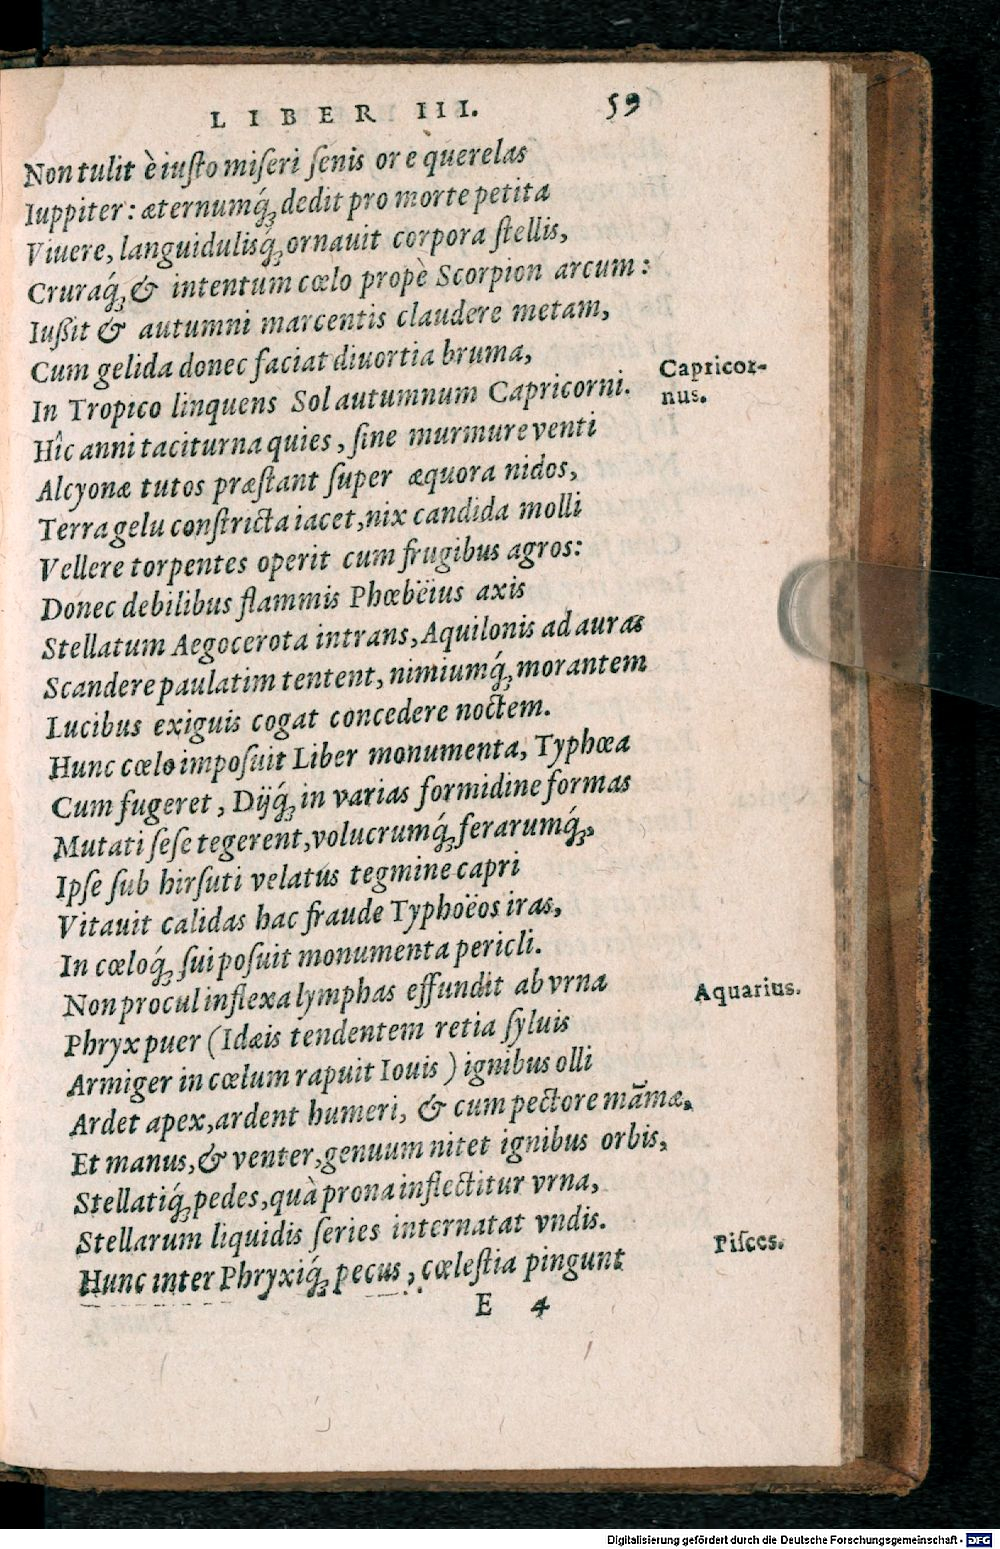 LIBER III. 59
Non tulit è iusto miseri senis ore querelas
Iuppiter: æternumq́ꝫ dedit pro morte petita
Viuere, languidulisq́ꝫ ornauit corpora stellis,
Cruraq́ꝫ & intentum cœlo propè Scorpion arcum:
Iußit & autumni marcentis claudere metam,
Cum gelida donec faciat diuortia bruma,
Capricor-
nus.
In Tropico linquens Sol autumnum Capricorni.
Hîc anni taciturna quies, sine murmure venti
Alcyonæ tutos præstant super æquora nidos,
Terra gelu constricta iacet, nix candida molli
Vellere torpentes operit cum frugibus agros:
Donec debilibus flammis Phœbëius axis
Stellatum Aegocerota intrans, Aquilonis ad auras
Scandere paulatim tentent, nimiumq́ꝫ morantem
Lucibus exiguis cogat concedere noctem.
Hunc cœlo imposuit Liber monumenta, Typhœa
Cum fugeret, Dijq́ꝫ in varias formidine formas
Mutati sese tegerent, volucrumq́ꝫ ferarumq́ꝫ,
Ipse sub hirsuti velatus tegmine capri
Vitauit calidas hac fraude Typhoëos iras,
In cœloq́ꝫ sui posuit monumenta pericli.
Non procul inflexa lymphas effundit ab vrna
Aquarius.
Phryx puer (Idæis tendentem retia syluis
Armiger in cœlum rapuit Iouis) ignibus olli
Ardet apex, ardent humeri, & cum pectore mãmæ,
Et manus, & venter, genuum nitet ignibus orbis,
Stellatiq́ꝫ pedes, quà prona inflectitur vrna,
Stellarum liquidis series internatat vndis.
Pisces.
Hunc inter Phryxiq́ꝫ pecus, cœlestia pingunt
E 4
Digitalisierung gefördert durch die Deutsche Forschungsgemeinschaft - DFG